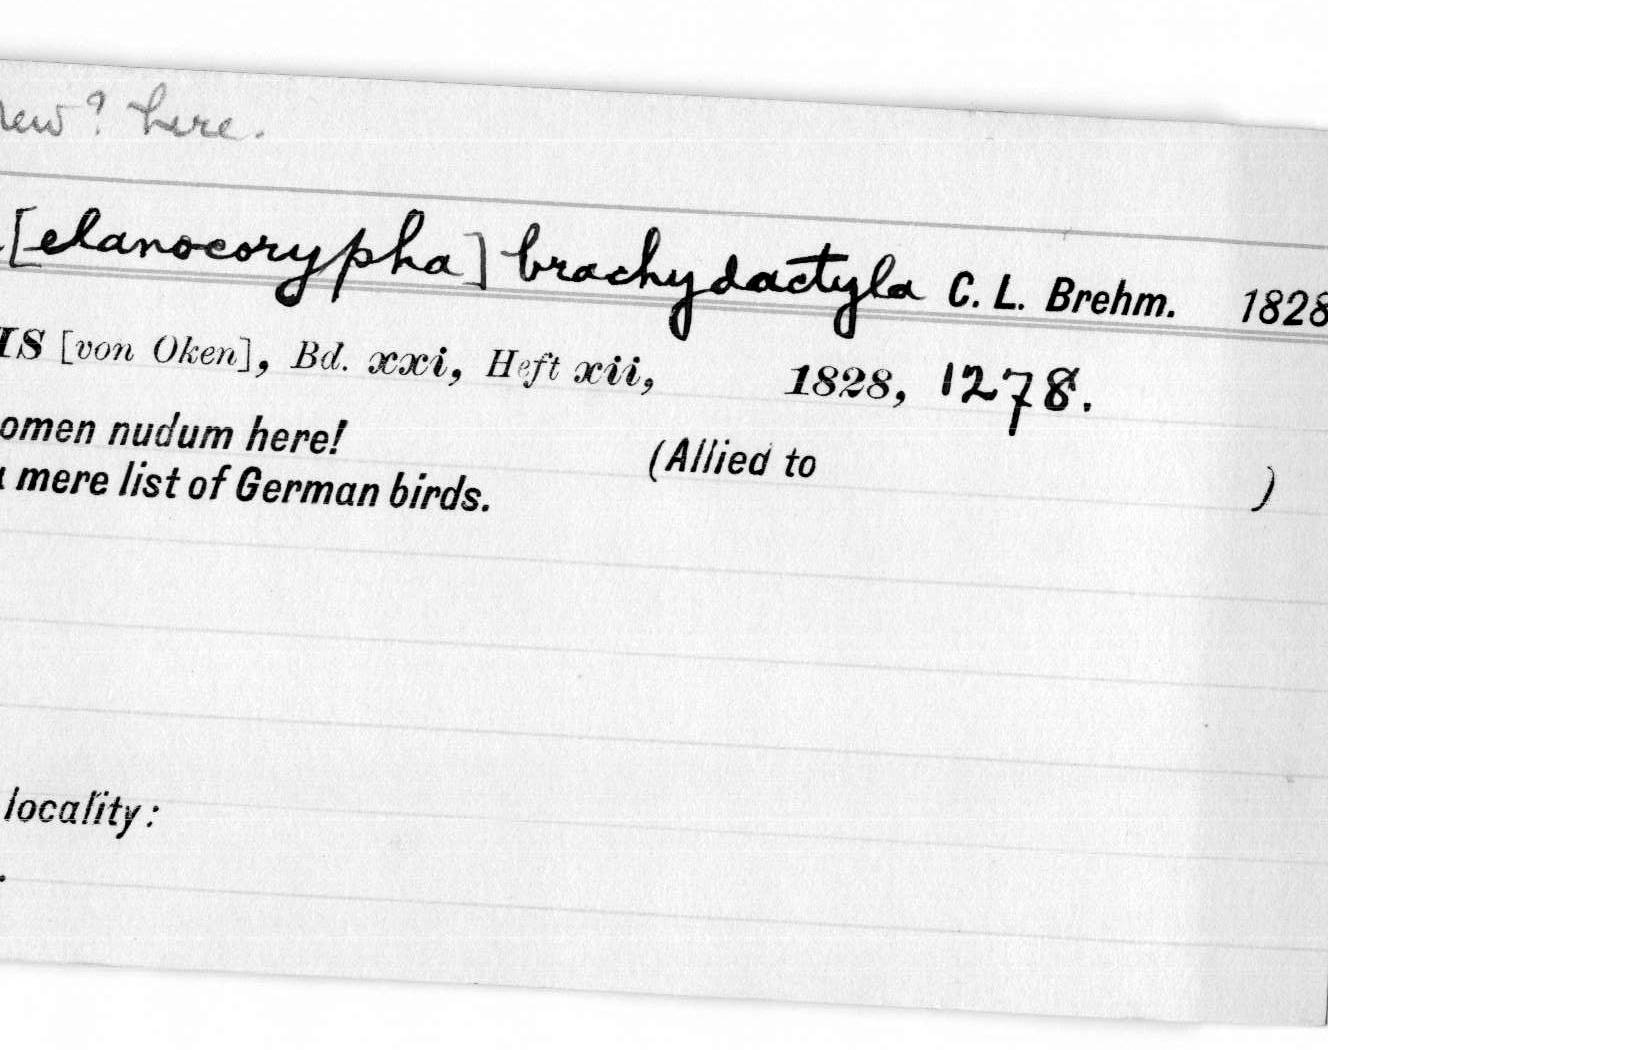 new? here.
[elanocorypha] brachydactyla C. L. Brehm. 1828
IS [von Oken], Bd. xxi, Heft xii, 1828, 1278.
omen nudum here! (Allied to )
mere list of German birds.
locality: